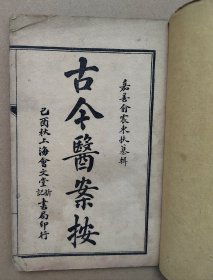 嘉善俞震東扶纂輯
古今醫案按
己酉秋上海會文堂新記書局印行